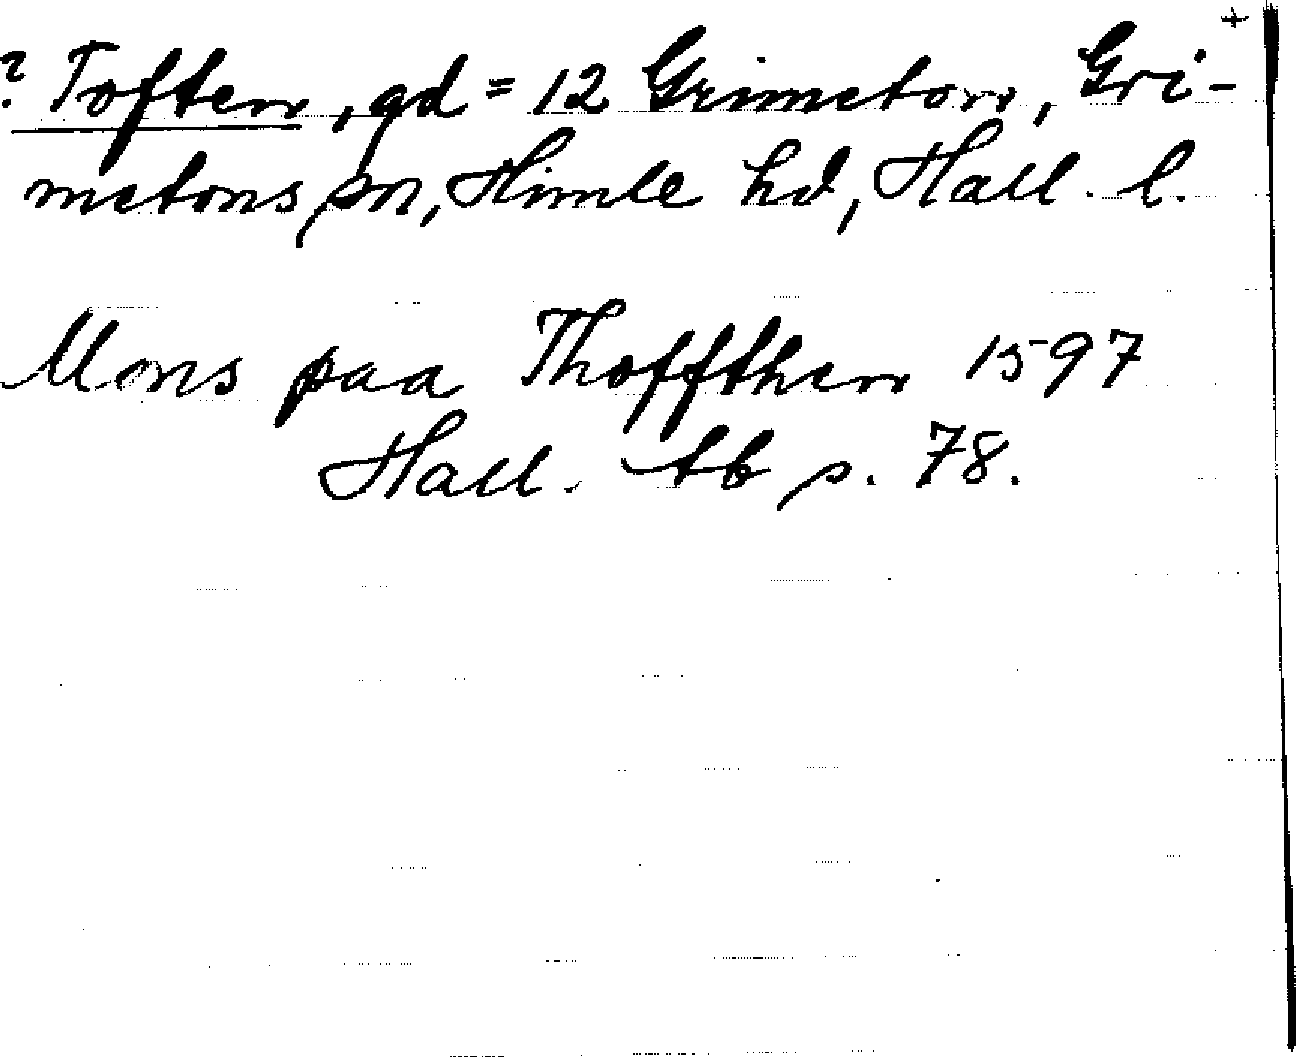 +
? Toften, gd = 12 Grimeton, Gri-
metons sn, Himle hd, Hall. l.
Mons paa Thoffthen 1597
Hall. tb s. 78.